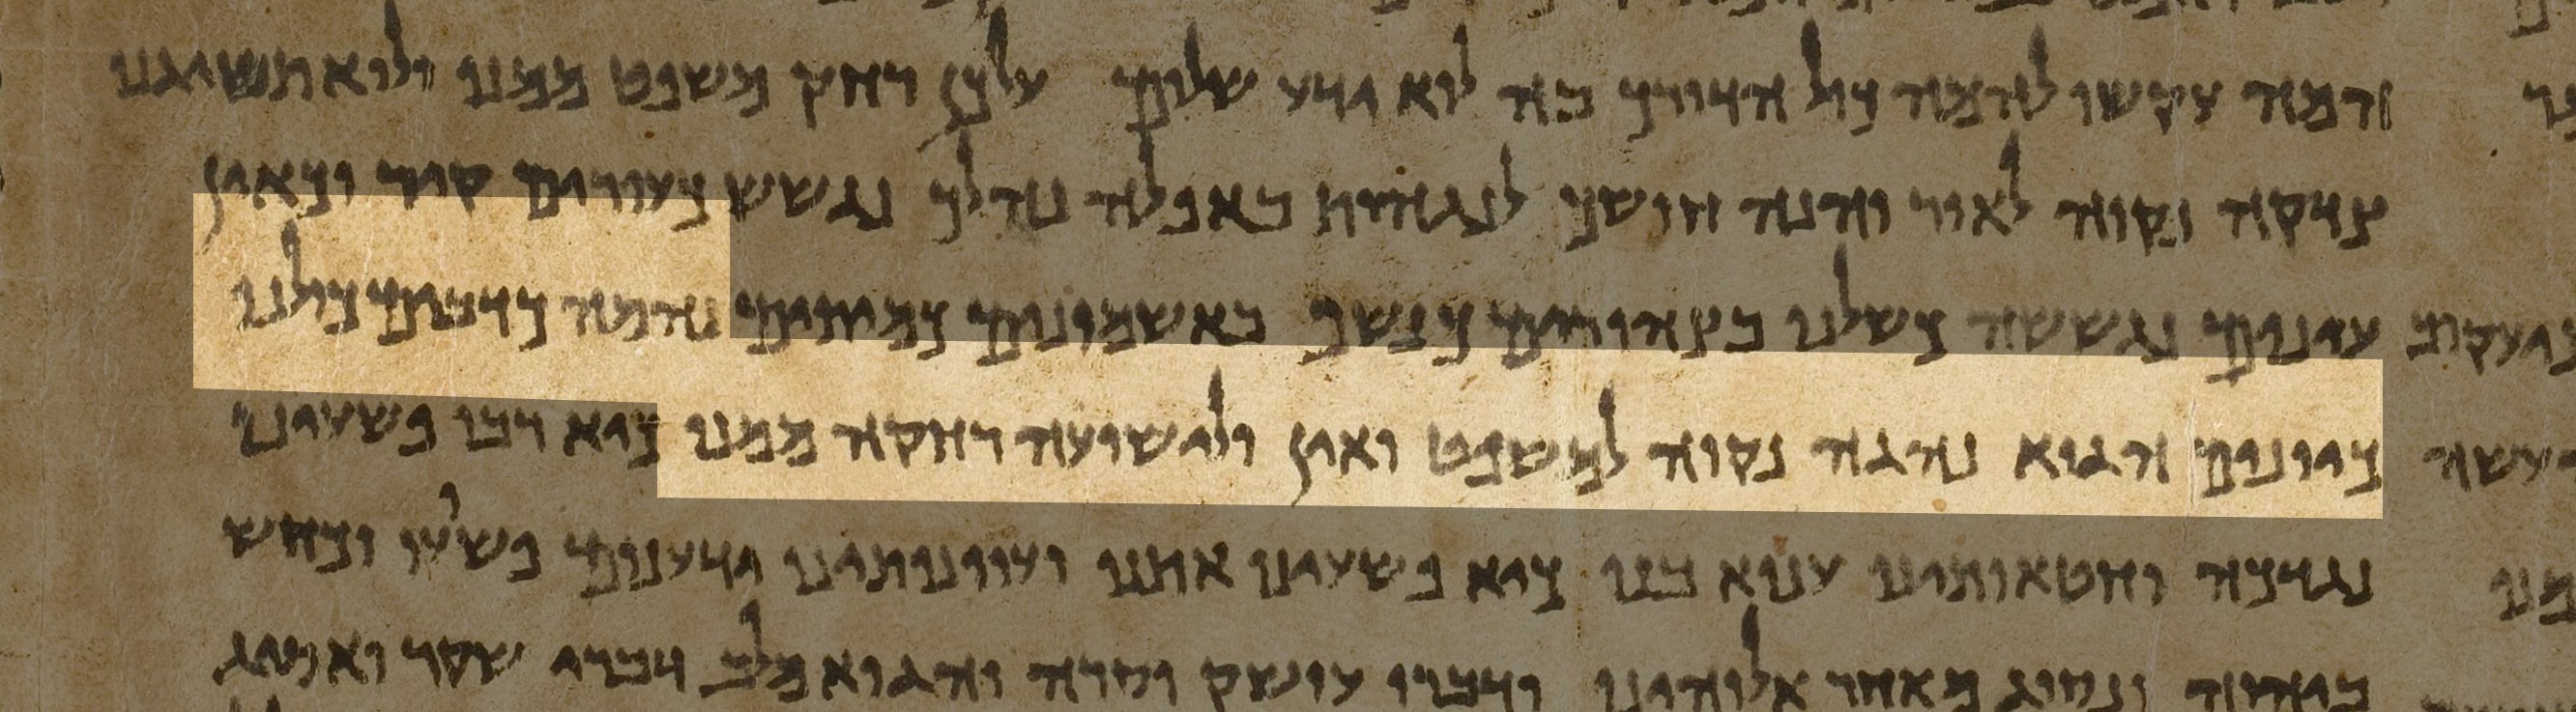 והמה עקשו להמה כול הדורך בה לוא ידע שלום על כן רחק משפט ממנו ולוא תשיגנו
צדקה נקוה לאור והנה חושך לנגהות באפלה נהלך נגשש כעורים קיר וכאין
עינים נגששה כשלנו בצהורים כנשף באשמונים כמיתים נהמה כדבים כולנו
כיונים הגוא נהגה נקוה למשפט ואין ולישועה רחקה ממנו כיא רבו פשעינו
נגדכה וחטאותינו ענוא בנו כיא פשעינו אתנו ועוונותינו ידענום פשוע וכחש
ביהוה ונסוג מאחר אלוהינו ודברו עושק וסרה והגוא מלב דברי שקר